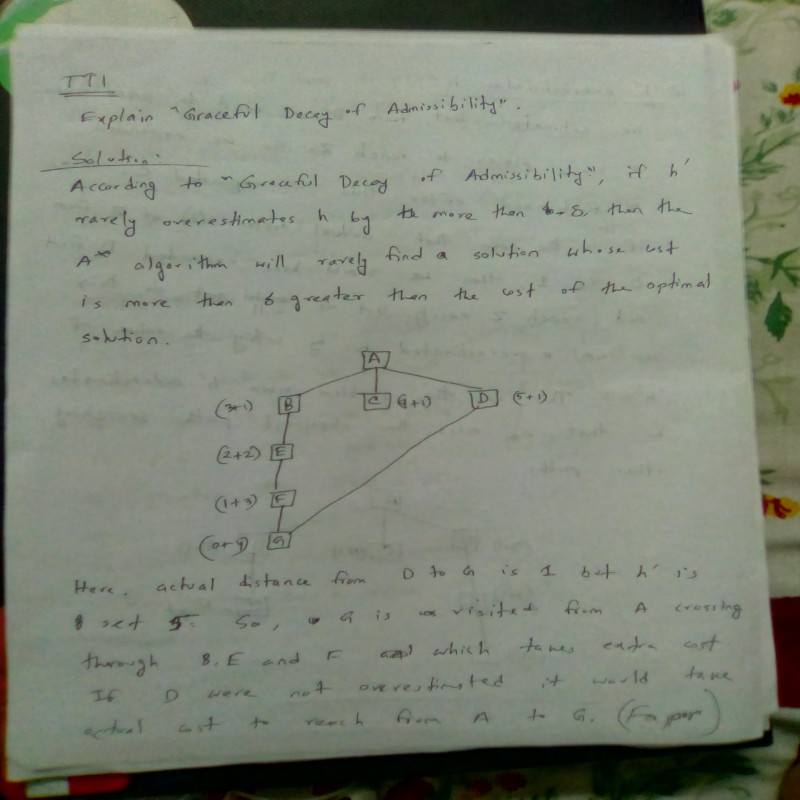 TT1
Explain "Graceful Decay of Admissibility".
Solution:
According to "Graceful Decay of Admissibility", if h'
rarely overestimates h by more than δ then the
A* algorithm will rarely find a solution whose cost
is more than δ greater than the cost of the optimal
solution.
A
(3+1) B C (4+1) D (5+1)
(2+2) E
(1+3) F
(0+4) G
Here, actual distance from D to G is 1 but h' is
set 5. So, G is visited from A crossing
through B, E and F which takes extra cost
If D were not overestimated it would take
actual cost to reach from A to G.